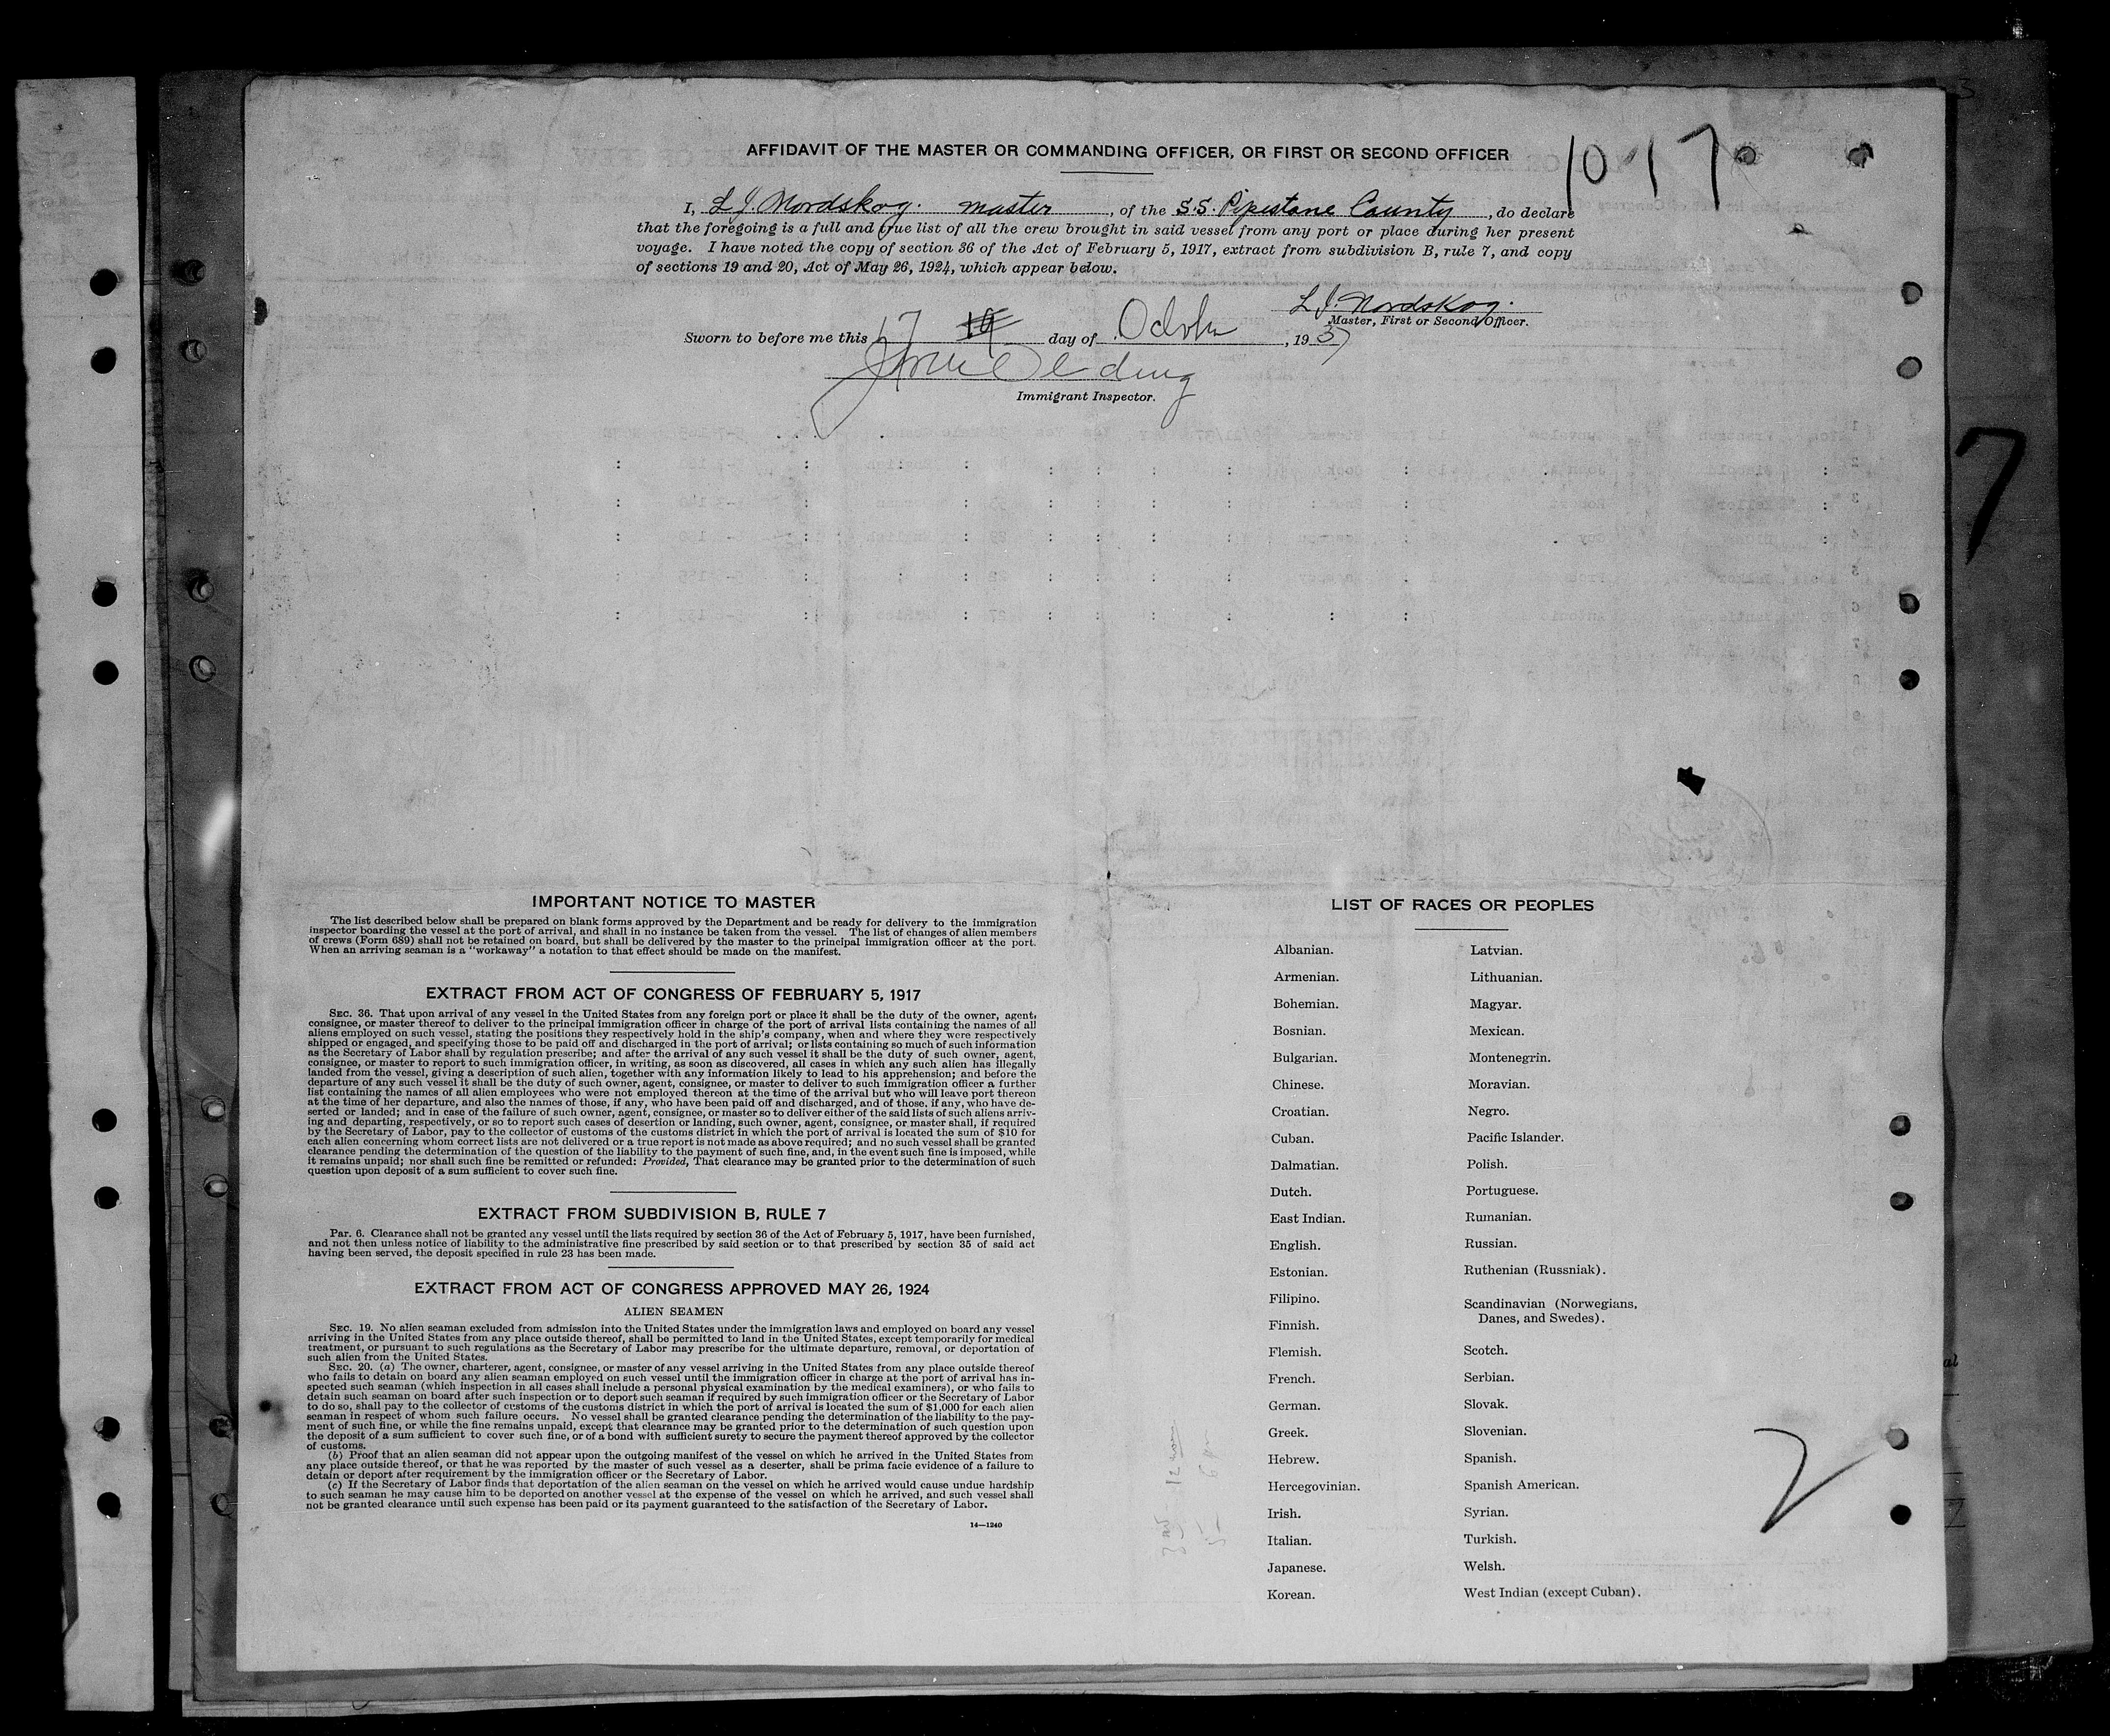 AFFIDAVIT OF THE MASTER OR COMMANDING OFFICER, OR FIRST OR SECOND OFFICER
1017
I, L J. Nordskog. master, of the S.S. Pipestone County, do declare
that the foregoing is a full and true list of all the crew brought in said vessel from any port or place during her present
voyage. I have noted the copy of section 36 of the Act of February 5, 1917, extract from subdivision B, rule 7, and copy
of sections 19 and 20, Act of May 26, 1924, which appear below.
L J. Nordskog.
Master, First or Second Officer.
Sworn to before me this 17 day of October, 1937
Immigrant Inspector.
7
IMPORTANT NOTICE TO MASTER
The list described below shall be prepared on blank forms approved by the Department and be ready for delivery to the immigration
inspector boarding the vessel at the port of arrival, and shall in no instance be taken from the vessel. The list of changes of alien members
of crews (Form 689) shall not be retained on board, but shall be delivered by the master to the principal immigration officer at the port.
When an arriving seaman is a "workaway" a notation to that effect should be made on the manifest.
EXTRACT FROM ACT OF CONGRESS OF FEBRUARY 5, 1917
SEC. 36. That upon arrival of any vessel in the United States from any foreign port or place it shall be the duty of the owner, agent,
consignee, or master thereof to deliver to the principal immigration officer in charge of the port of arrival lists containing the names of all
aliens employed on such vessel, stating the positions they respectively hold in the ship's company, when and where they were respectively
shipped or engaged, and specifying those to be paid off and discharged in the port of arrival; or lists containing so much of such information
as the Secretary of Labor shall by regulation prescribe; and after the arrival of any such vessel it shall be the duty of such owner, agent,
consignee, or master to report to such immigration officer, in writing, as soon as discovered, all cases in which any such alien has illegally
landed from the vessel, giving a description of such alien, together with any information likely to lead to his apprehension; and before the
departure of any such vessel it shall be the duty of such owner, agent, consignee, or master to deliver to such immigration officer a further
list containing the names of all alien employees who were not employed thereon at the time of the arrival but who will leave port thereon
at the time of her departure, and also the names of those, if any, who have been paid off and discharged, and of those, if any, who have de-
serted or landed; and in case of the failure of such owner, agent, consignee, or master so to deliver either of the said lists of such aliens arriv-
ing and departing, respectively, or so to report such cases of desertion or landing, such owner, agent, consignee, or master, shall, if required
by the Secretary of Labor, pay to the collector of customs of the customs district in which the port of arrival is located the sum of $10 for
each alien concerning whom correct lists are not delivered or a true report is not made as above required; and no such vessel shall be granted
clearance pending the determination of the question of the liability to the payment of such fine, and, in the event such fine is imposed, while
it remains unpaid; nor shall such fine be remitted or refunded: Provided, That clearance may be granted prior to the determination of such
question upon deposit of a sum sufficient to cover such fine.
EXTRACT FROM SUBDIVISION B, RULE 7
Par. 6. Clearance shall not be granted any vessel until the lists required by section 36 of the Act of February 5, 1917, have been furnished,
and not then unless notice of liability to the administrative fine prescribed by said section or to that prescribed by section 35 of said act
having been served, the deposit specified in rule 23 has been made.
EXTRACT FROM ACT OF CONGRESS APPROVED MAY 26, 1924
ALIEN SEAMEN
SEC. 19. No alien seaman excluded from admission into the United States under the immigration laws and employed on board any vessel
arriving in the United States from any place outside thereof, shall be permitted to land in the United States, except temporarily for medical
treatment, or pursuant to such regulations as the Secretary of Labor may prescribe for the ultimate departure, removal, or deportation of
such alien from the United States.
SEC. 20. (a) The owner, charterer, agent, consignee, or master of any vessel arriving in the United States from any place outside thereof
who fails to detain on board any alien seaman employed on such vessel until the immigration officer in charge at the port of arrival has in-
spected such seaman (which inspection in all cases shall include a personal physical examination by the medical examiners), or who fails to
detain such seaman on board after such inspection or to deport such seaman if required by such immigration officer or the Secretary of Labor
to do so, shall pay to the collector of customs of the customs district in which the port of arrival is located the sum of $1,000 for each alien
seaman in respect of whom such failure occurs. No vessel shall be granted clearance pending the determination of the liability to the pay-
ment of such fine, or while the fine remains unpaid, except that clearance may be granted prior to the determination of such question upon
the deposit of a sum sufficient to cover such fine, or of a bond with sufficient surety to secure the payment thereof approved by the collector
of customs.
(b) Proof that an alien seaman did not appear upon the outgoing manifest of the vessel on which he arrived in the United States from
any place outside thereof, or that he was reported by the master of such vessel as a deserter, shall be prima facie evidence of a failure to
detain or deport after requirement by the immigration officer or the Secretary of Labor.
(c) If the Secretary of Labor finds that deportation of the alien seaman on the vessel on which he arrived would cause undue hardship
to such seaman he may cause him to be deported on another vessel at the expense of the vessel on which he arrived, and such vessel shall
not be granted clearance until such expense has been paid or its payment guaranteed to the satisfaction of the Secretary of Labor.
14—1240
LIST OF RACES OR PEOPLES
Albanian.
Armenian.
Bohemian.
Bosnian.
Bulgarian.
Chinese.
Croatian.
Cuban.
Dalmatian.
Dutch.
East Indian.
English.
Estonian.
Filipino.
Finnish.
Flemish.
French.
German.
Greek.
Hebrew.
Hercegovinian.
Irish.
Italian.
Japanese.
Korean.
Latvian.
Lithuanian.
Magyar.
Mexican.
Montenegrin.
Moravian.
Negro.
Pacific Islander.
Polish.
Portuguese.
Rumanian.
Russian.
Ruthenian (Russniak).
Scandinavian (Norwegians,
Danes, and Swedes).
Scotch.
Serbian.
Slovak.
Slovenian.
Spanish.
Spanish American.
Syrian.
Turkish.
Welsh.
West Indian (except Cuban).
2